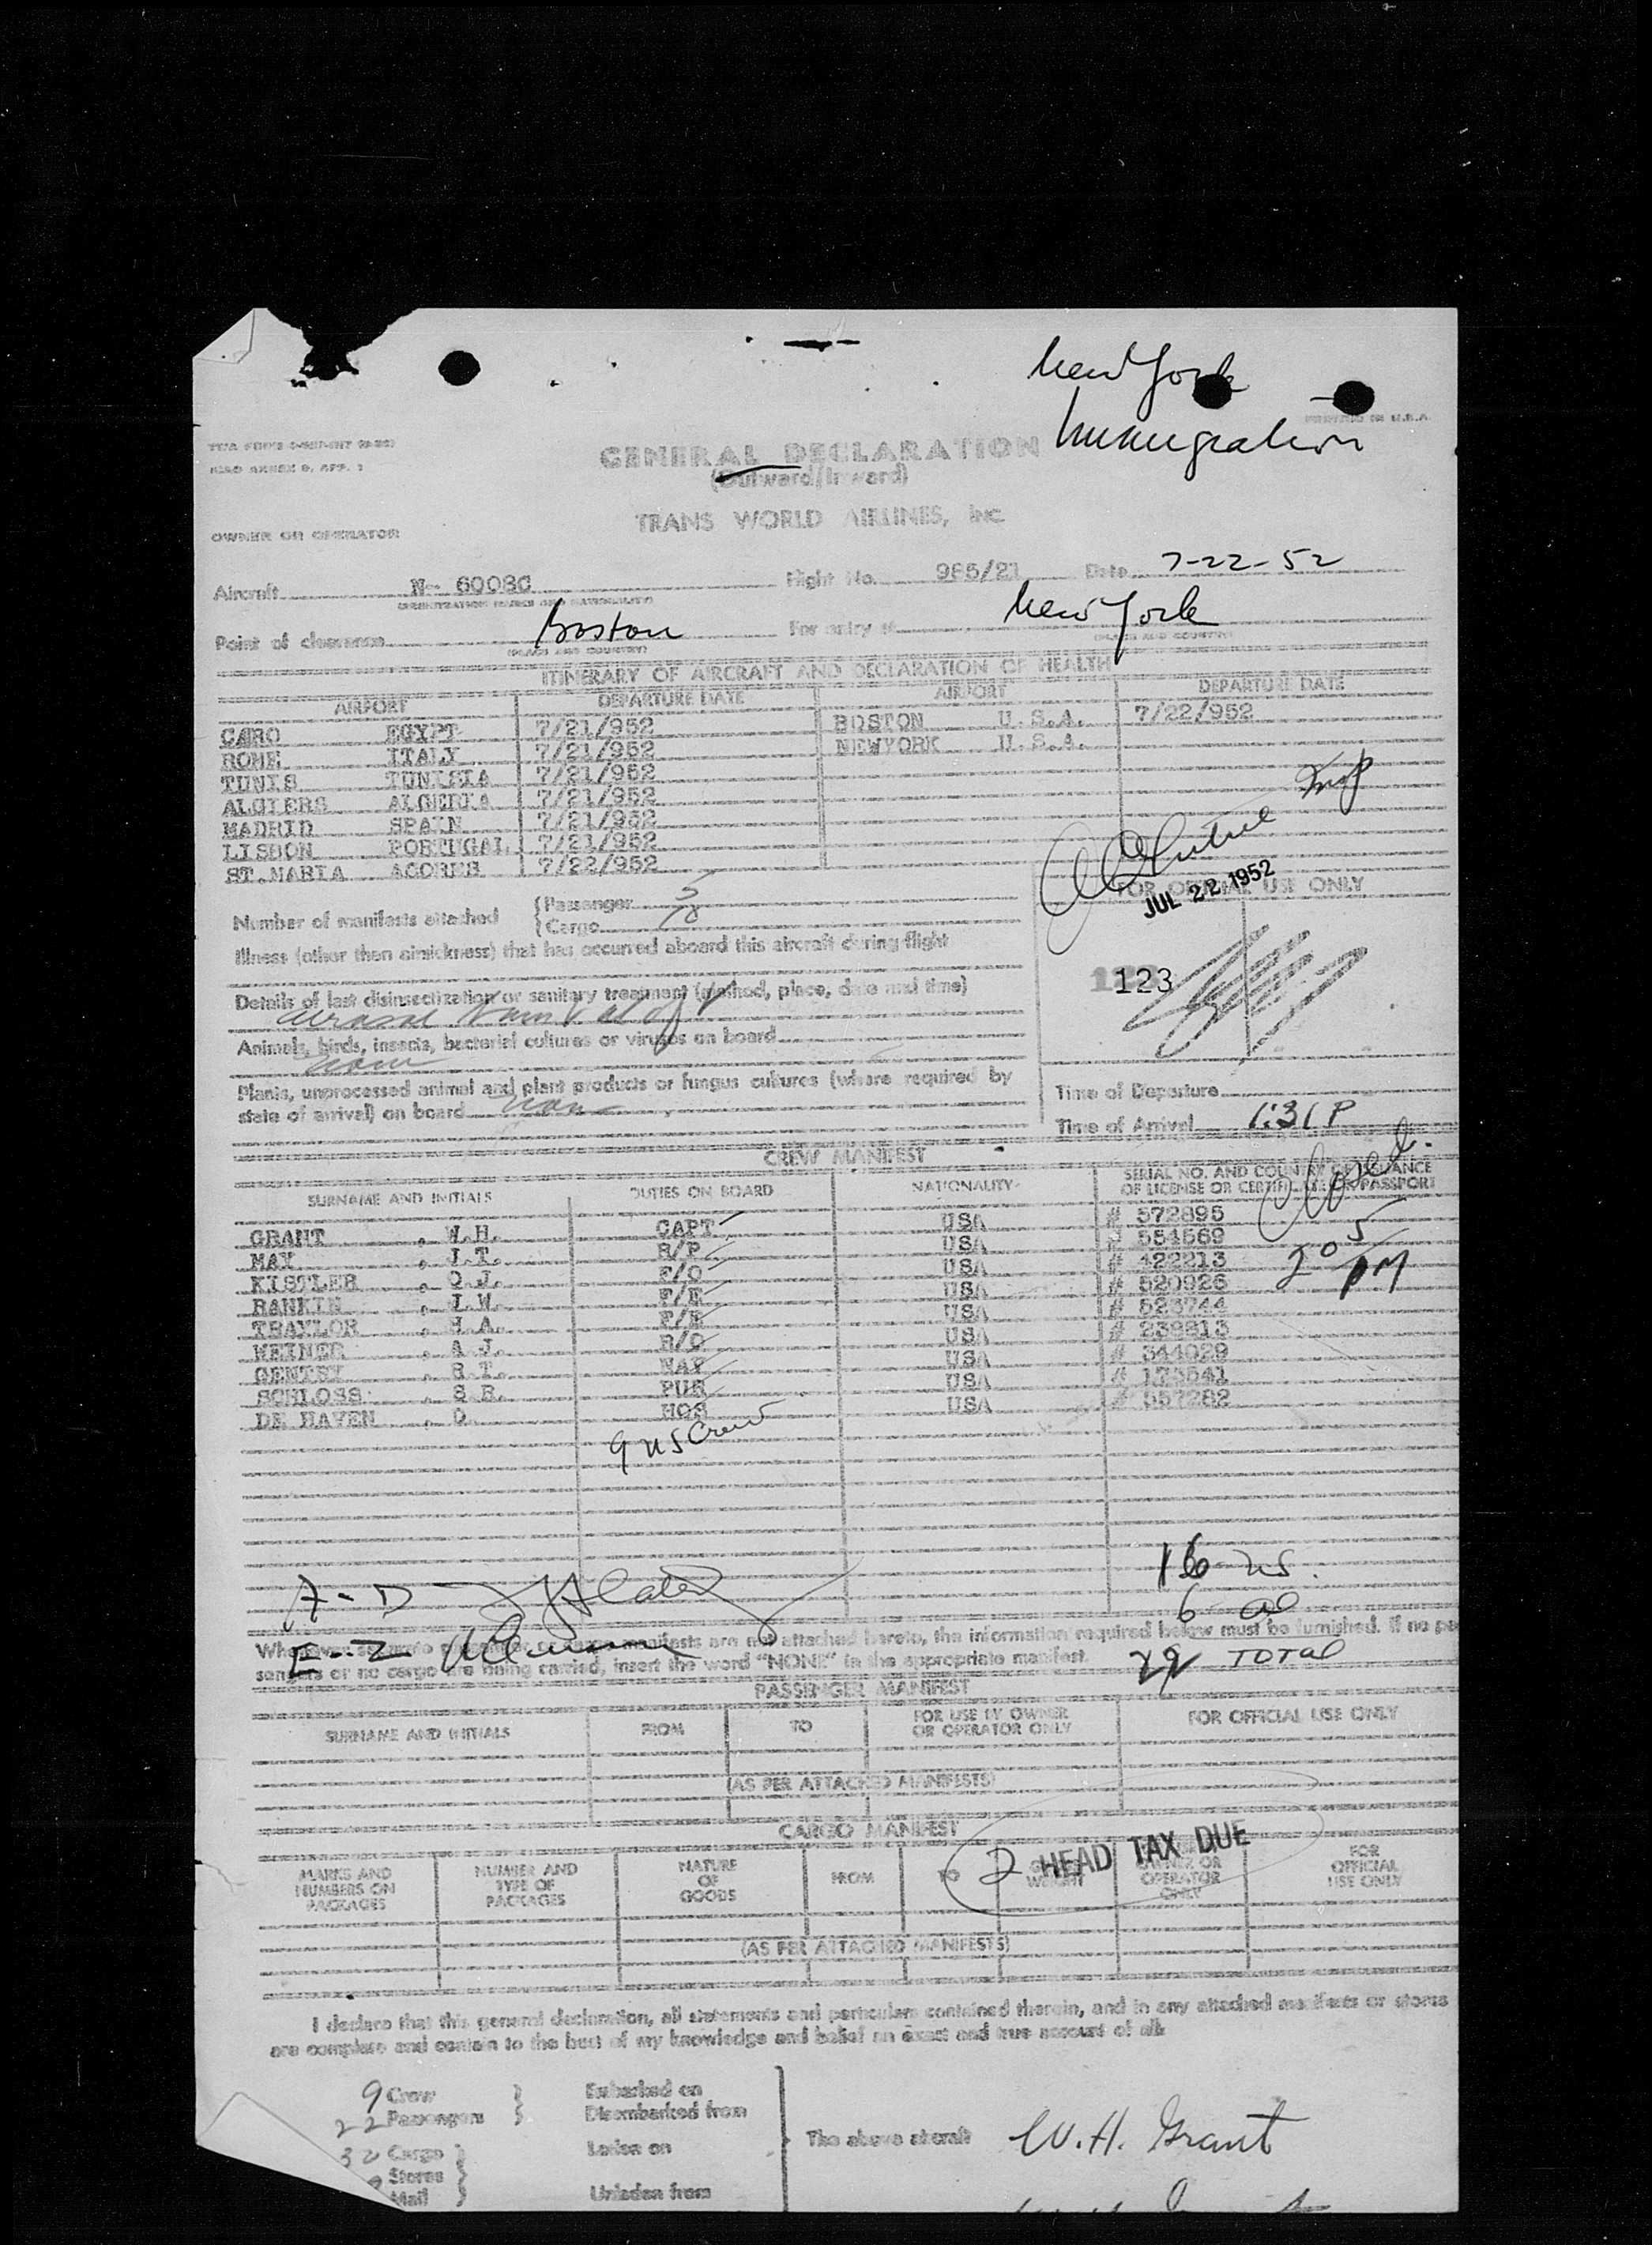 New York
Immigration
PRINTED IN U.S.A.
ICAO ANNEX 9, APP. 1
GENERAL DECLARATION
(Outward/Inward)
TRANS WORLD AIRLINES, INC.
OWNER OR OPERATOR
Aircraft N- 6008C Flight No. 985/21 Date 7-22-52
(REGISTRATION MARKS AND NATIONALITY)
Point of clearance Boston For entry at New York
(PLACE AND COUNTRY) (PLACE AND COUNTRY)
ITINERARY OF AIRCRAFT AND DECLARATION OF HEALTH
AIRPORT DEPARTURE DATE AIRPORT DEPARTURE DATE
CAIRO EGYPT 7/21/952 BOSTON U.S.A. 7/22/952
ROME ITALY 7/21/952 NEWYORK U.S.A.
TUNIS TUNISIA 7/21/952
ALGIERS ALGERIA 7/21/952
MADRID SPAIN 7/21/952
LISBON PORTUGAL 7/21/952
ST.MARIA ACORES 7/22/952
FOR OFFICIAL USE ONLY
JUL 22 1952
Number of manifests attached
Passenger 5
Cargo
Illness (other than airsickness) that has occurred aboard this aircraft during flight
123
Details of last disinsectization or sanitary treatment (method, place, date and time)
Animals, birds, insects, bacterial cultures or viruses on board
none
Plants, unprocessed animal and plant products or fungus cultures (where required by
state of arrival) on board none
Time of Departure
Time of Arrival 1:31 P
CREW MANIFEST
SURNAME AND INITIALS DUTIES ON BOARD NATIONALITY SERIAL NO. AND COUNTRY OF ISSUANCE
OF LICENSE OR CERTIFICATE OR PASSPORT
GRANT , W.H. CAPT USA # 572895
MAY , J.T. R/P USA # 554569
KISTLER , O.J. F/O USA # 422213
RANKIN , I.W. F/E USA # 520926
TRAYLOR , H.A. F/E USA # 523744
MEINER , A.J. R/O USA # 239813
GENTRY , R.T. NAV USA # 344029
SCHLOSS , S.R. PUR USA # 173541
DE HAVEN , D. HOS USA # 557282
2 05
PM
9 US Crew
16 US.
6 al
22 TOTAL
A-D
E-Z
Whenever separate passenger or cargo manifests are not attached hereto, the information required below must be furnished. If no pas
sengers or no cargo are being carried, insert the word "NONE" in the appropriate manifest.
PASSENGER MANIFEST
SURNAME AND INITIALS FROM TO FOR USE BY OWNER
OR OPERATOR ONLY FOR OFFICIAL USE ONLY
(AS PER ATTACHED MANIFESTS)
CARGO MANIFEST
2 HEAD TAX DUE
MARKS AND
NUMBERS ON
PACKAGES NUMBER AND
TYPE OF
PACKAGES NATURE
OF
GOODS FROM TO WEIGHT OWNER OR
OPERATOR
ONLY FOR
OFFICIAL
USE ONLY
(AS PER ATTACHED MANIFESTS)
I declare that this general declaration, all statements and particulars contained therein, and in any attached manifests or stores
are complete and contain to the best of my knowledge and belief an exact and true account of all:
9 Crew Embarked on
22 Passengers Disembarked from
30 Cargo Laden on The above aircraft W.H. Grant
Stores
Mail Unladen from